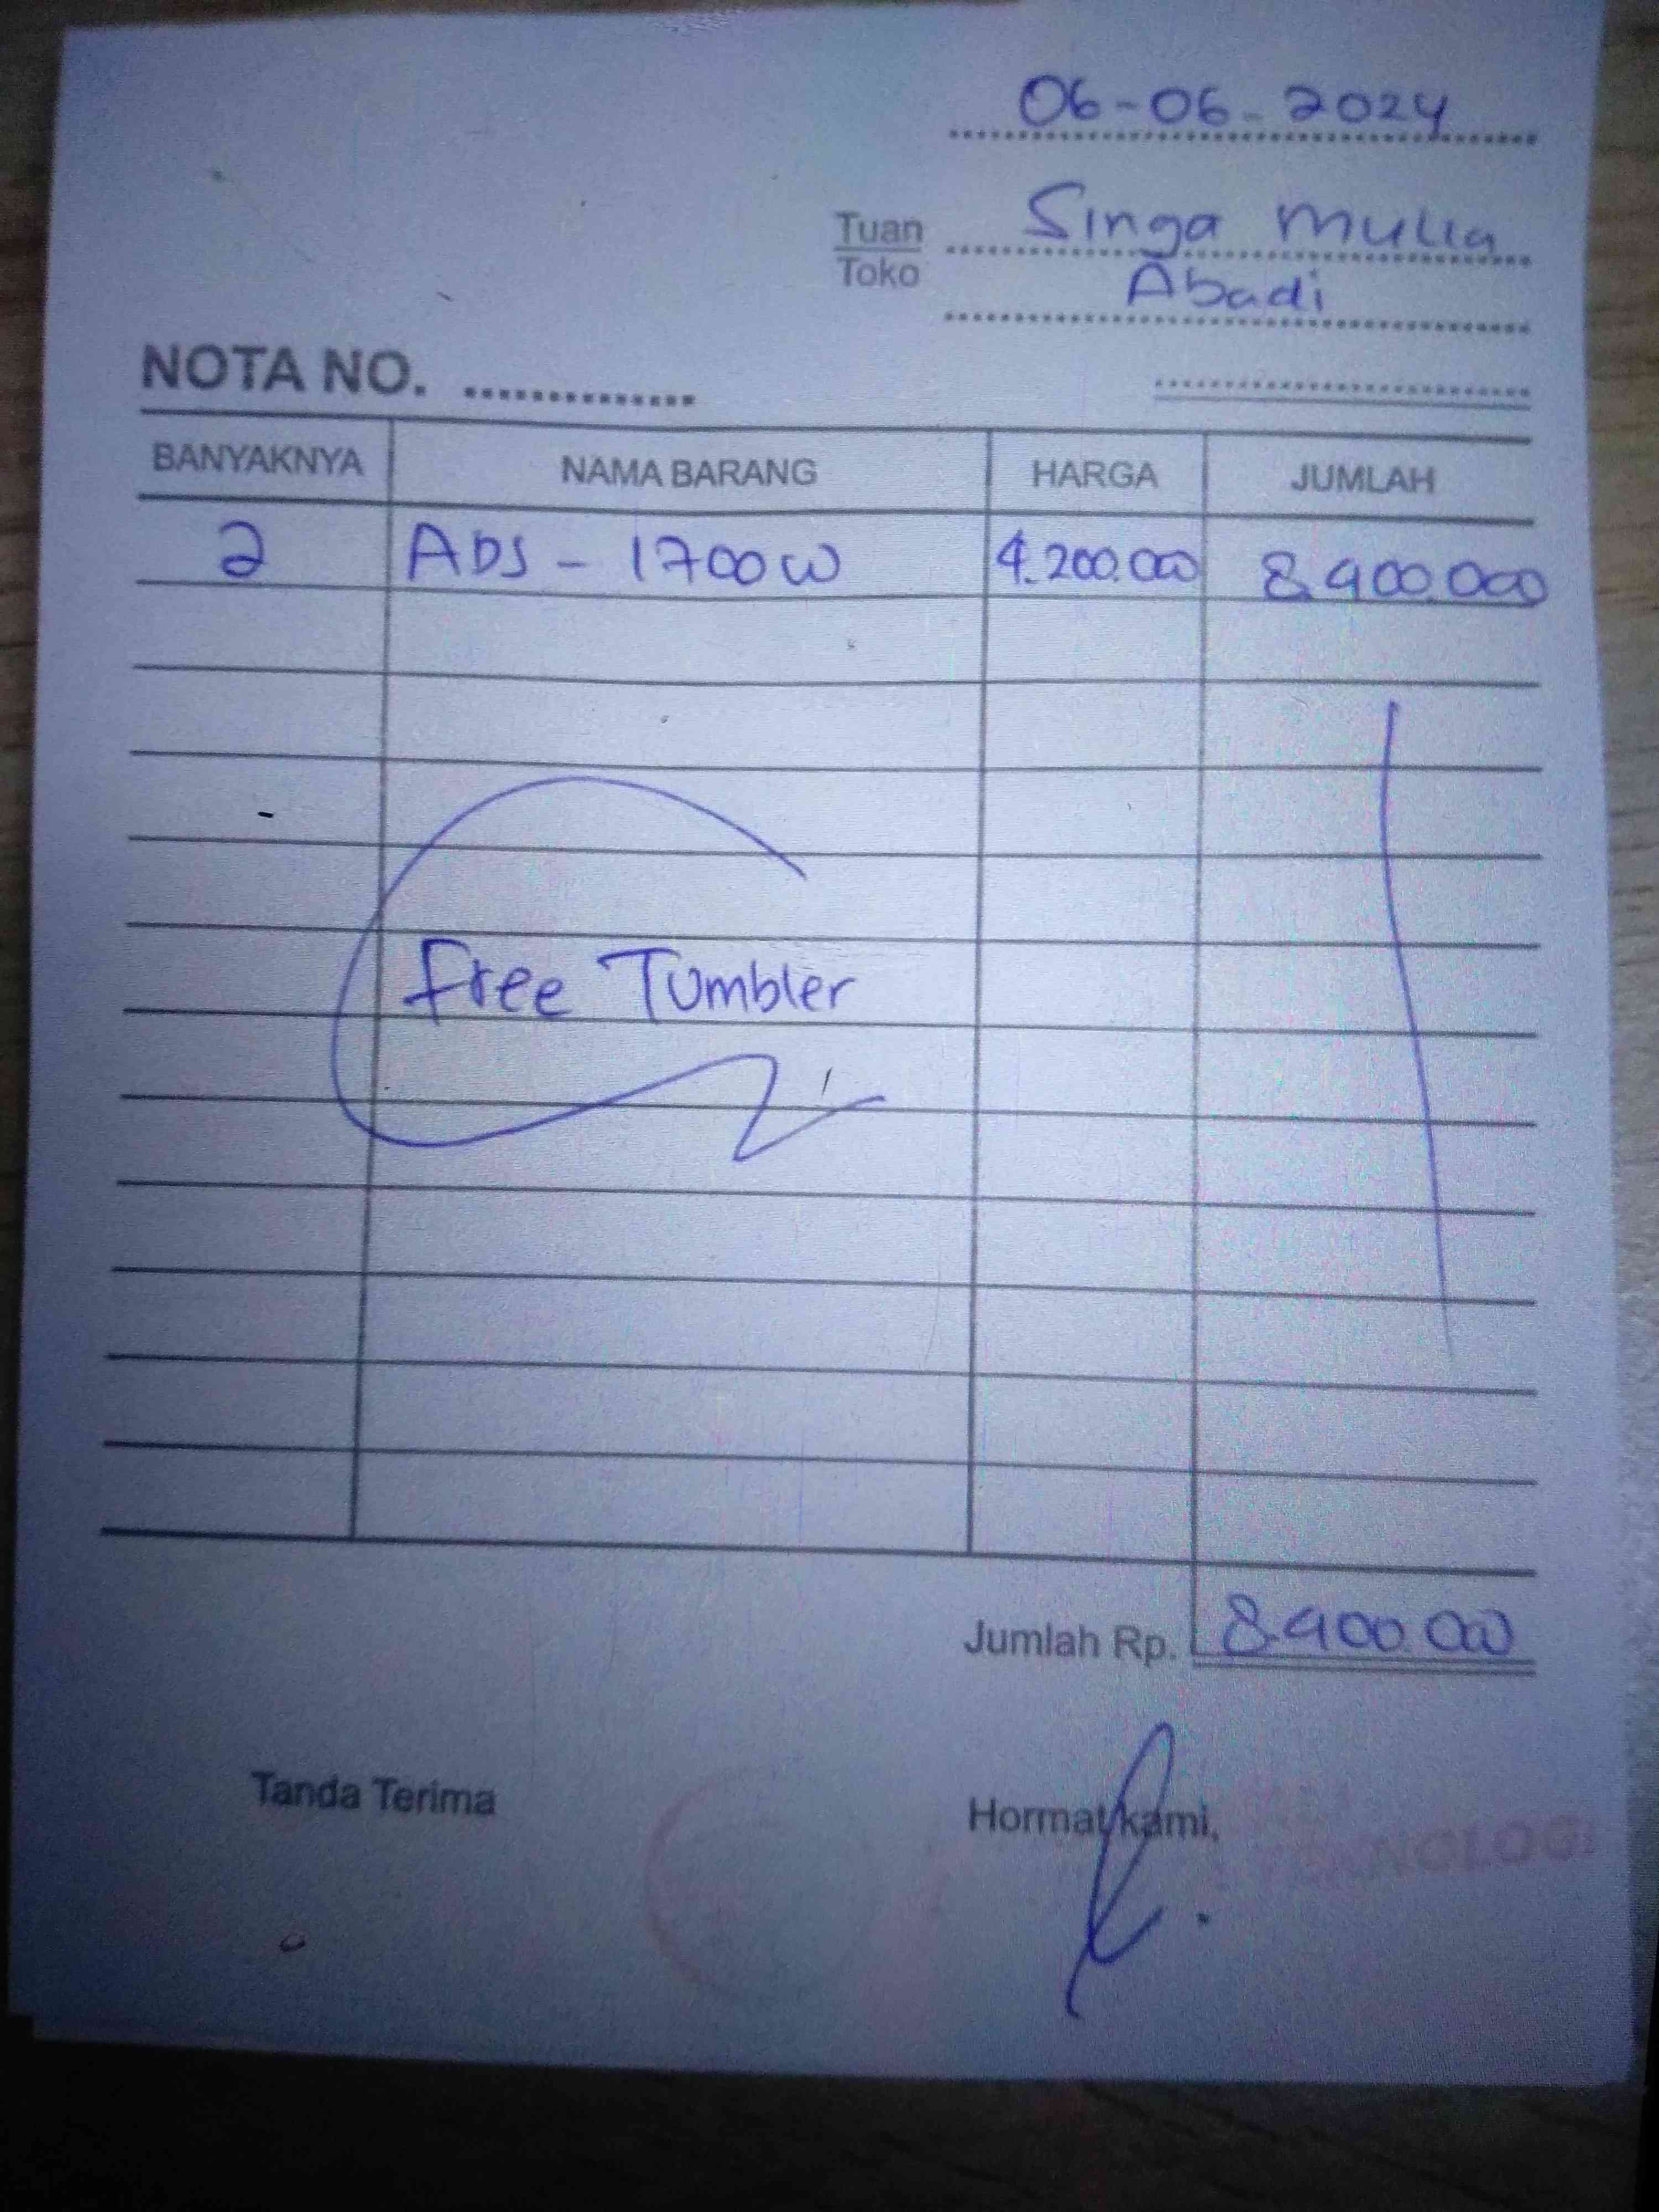 06-06-2024
Tuan Singa Mulia
Toko Abadi
NOTA NO. ..............
BANYAKNYA NAMA BARANG HARGA JUMLAH
2 ADS - 1700W 4.200.000 8.400.000
Free Tumbler
Jumlah Rp. 8.400.000
Tanda Terima Hormat kami,
TEKNOLOGI